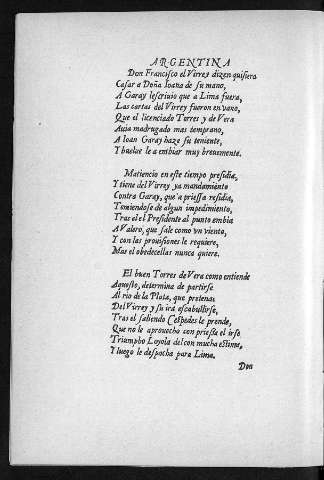 ARGENTINA
Don Francisco el Virrey dizen quisiera
Casar a Doña Ioana de su mano,
A Garay lescriuio que a Lima fuera,
Las cartas del Virrey fueron en vano,
Que el licenciado Torres y de Vera
Auia madrugado mas temprano,
A Ioan Garay haze su teniente,
Y buelue le a embiar muy breuemente.
Matiencio en este tiempo presidia,
Y tiene del Virrey ya mandamiento
Contra Garay, que a priessa residia,
Temiendose de algun impedimiento,
Tras el el Presidente al punto embia
A Valero, que sale como vn viento,
Y con las prouisiones le requiere,
Mas el obedecellas nunca quiere.
El buen Torres de Vera como entiende
Aquesto, determina de partirse
Al rio de la Plata, que pretende
Del Virrey y su ira escabullirse,
Tras el saliendo Cespedes le prende,
Que no le aprouecho con priessa el irse
Triumpho Loyola del con mucha estima,
Y luego le despacha para Lima.
Don